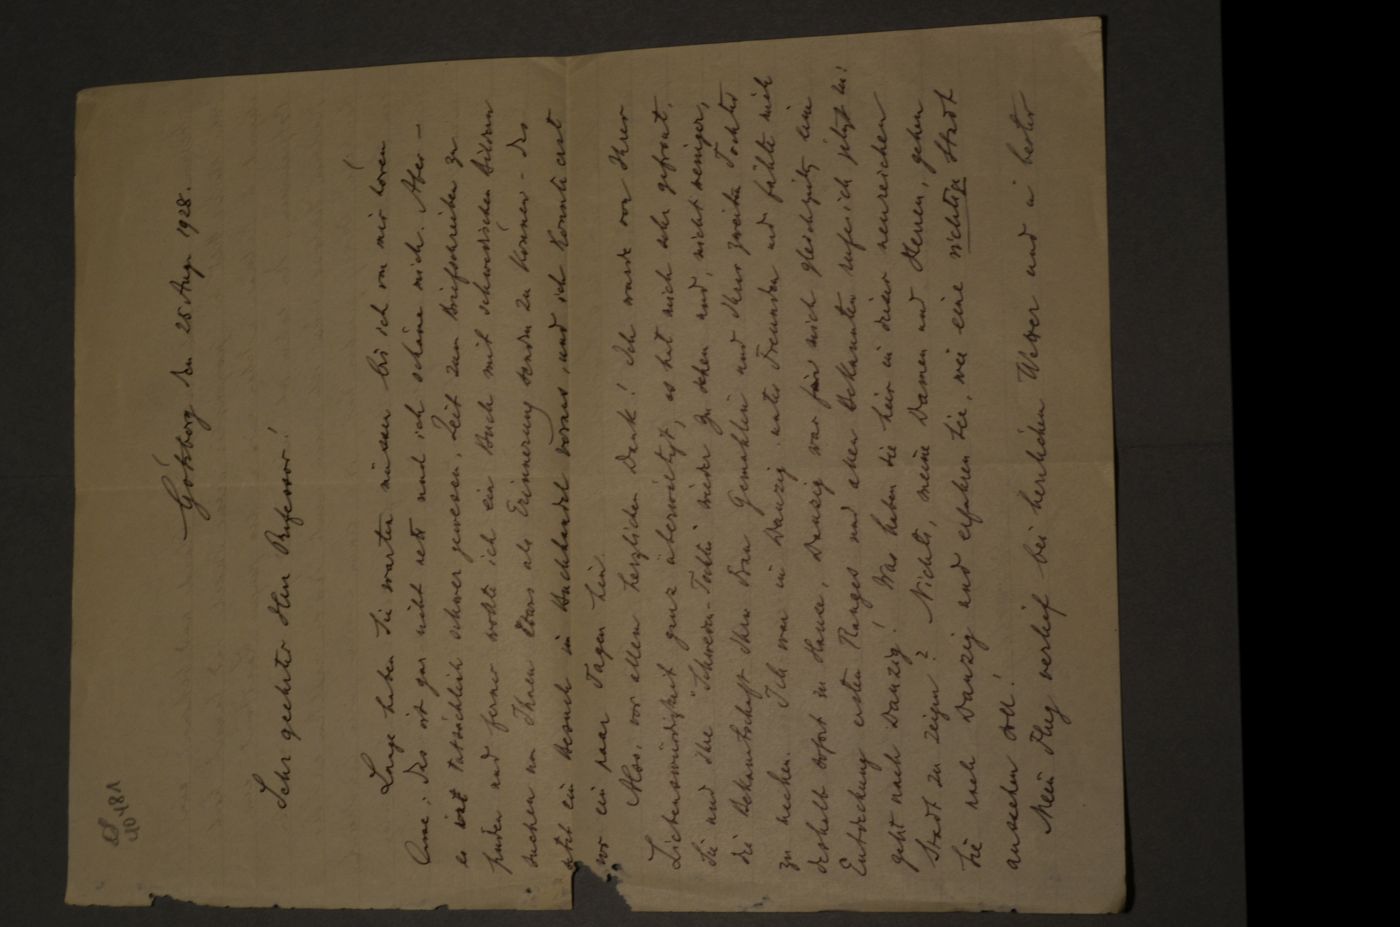 S
10.481
Göteborg den 25 Aug. 1928.
Sehr geehrter Herr Professor!
Lange haben Sie warten müssen bis ich von mir hören
lasse; das ist gar nicht nett und ich schäme mich. Aber –
es ist tatsächlich schwer gewesen, Zeit zum Briefschreiben zu
finden und ferner wollte ich ein Buch mit schwedischen Bildern
suchen um Ihnen etwas als Erinnerung senden zu können - das
setzt ein Besuch im Buchhandel voraus, und ich konnte erst
vor ein paar Tagen hin.
Also, vor allem herzlichen Dank! Ich wurde von Ihrer
Liebenswürdigkeit ganz überwältigt, es hat mich sehr gefreut,
Sie und Ihre Schweden-Tochter wieder zu sehen und, nicht weniger,
die Bekanntschaft Ihrer Frau Gemahlin und Ihrer zweiten Tochter
zu machen. Ich war in Danzig unter Freunden und fühlte mich
deshalb sofort zu Hause, Danzig war für mich gleichzeitig eine
Entdeckung ersten Ranges und allen Bekannten rufe ich jetzt zu:
geht nach Danzig! Was haben Sie hier in dieser neureichen
Stadt zu zeigen? Nichts, meine Damen und Herren, gehen
Sie nach Danzig und erfahren Sie, wie eine richtige Stadt
aussehen soll!
Mein Flug verlief bei herrlichem Wetter und in bester